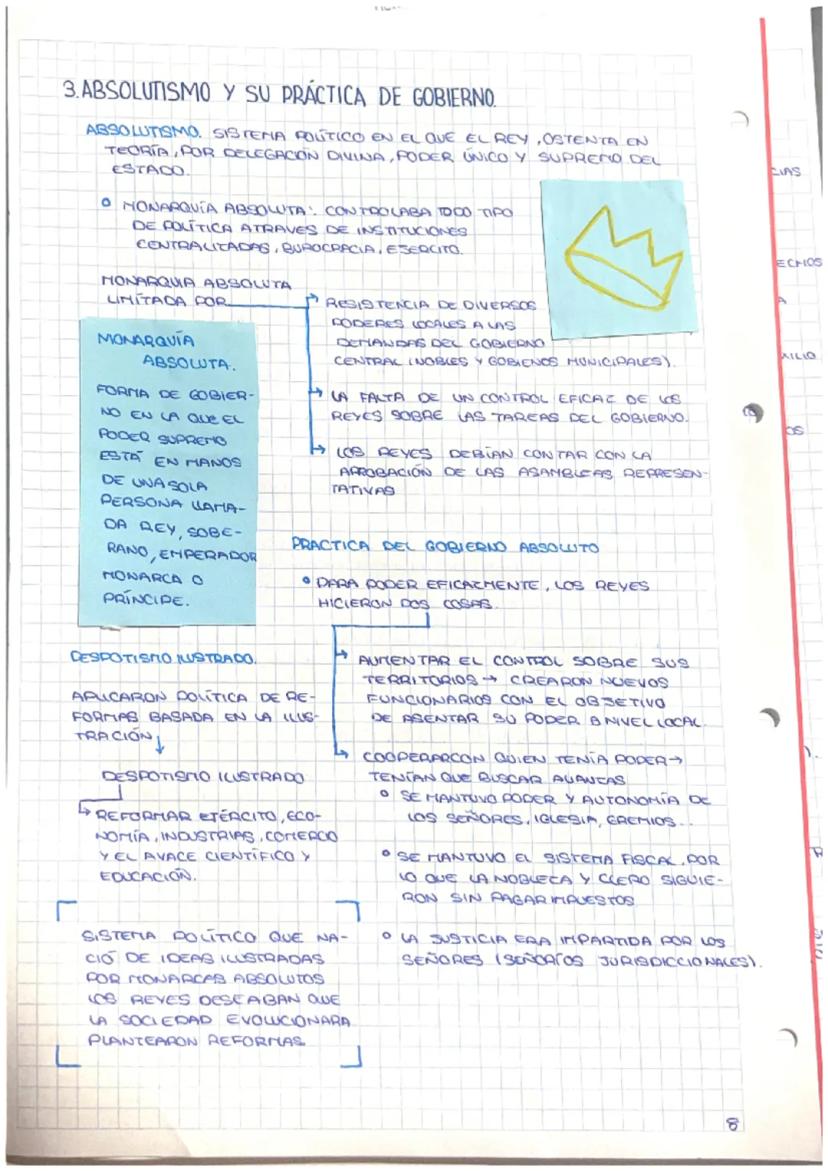 3. ABSOLUTISMO Y SU PRÁCTICA DE GOBIERNO.
ABSOLUTISMO. SISTEMA POLÍTICO EN EL QUE EL REY, OSTENTA EN
TEORÍA, POR DELEGACIÓN DIVINA, PODER ÚNICO Y SUPREMO DEL
ESTADO.
• MONARQUÍA ABSOLUTA: CONTROLABA TODO TIPO
DE POLÍTICA ATRAVES DE INSTITUCIONES
CENTRALIZADAS, BUROCRACIA, EJERCITO.
MONARQUIA ABSOLUTA
LIMITADA POR
→ RESISTENCIA DE DIVERSOS
PODERES LOCALES A LAS
DEMANDAS DEL GOBIERNO
CENTRAL (NOBLES Y GOBIENOS MUNICIPALES).
→ LA FALTA DE UN CONTROL EFICAZ DE LOS
REYES SOBRE LAS TAREAS DEL GOBIERNO.
→ LOS REYES DEBÍAN CONTAR CON LA
APROBACIÓN DE LAS ASAMBLEAS REPRESEN-
TATIVAS
MONARQUÍA
ABSOLUTA.
FORMA DE GOBIER-
NO EN LA QUE EL
PODER SUPREMO
ESTÁ EN MANOS
DE UNA SOLA
PERSONA LLAMA-
DA REY, SOBE-
RANO, EMPERADOR
MONARCA O
PRÍNCIPE.
PRACTICA DEL GOBIERNO ABSOLUTO
• PARA PODER EFICAZMENTE, LOS REYES
HICIERON DOS COSAS.
→ AUMENTAR EL CONTROL SOBRE SUS
TERRITORIOS → CREARON NUEVOS
FUNCIONARIOS CON EL OBJETIVO
DE ASENTAR SU PODER A NIVEL LOCAL.
→ COOPERARCON QUIEN TENÍA PODER →
TENÍAN QUE BUSCAR ALIANZAS
• SE MANTUVO PODER Y AUTONOMÍA DE
LOS SEÑORES, IGLESIA, GREMIOS...
• SE MANTUVO EL SISTEMA FISCAL, POR
LO QUE LA NOBLEZA Y CLERO SIGUIE-
RON SIN PAGAR IMPUESTOS
• LA JUSTICIA ERA IMPARTIDA POR LOS
SEÑORES (SEÑORÍOS JURISDICCIONALES).
DESPOTISMO ILUSTRADO.
APLICARON POLÍTICA DE RE-
FORMAS BASADA EN LA ILUS-
TRACIÓN ↓
DESPOTISMO ILUSTRADO
→ REFORMAR EJÉRCITO, ECO-
NOMÍA, INDUSTRIAS, COMERCIO
Y EL AVACE CIENTÍFICO Y
EDUCACIÓN.
SISTEMA POLÍTICO QUE NA-
CIÓ DE IDEAS ILUSTRADAS
POR MONARCAS ABSOLUTOS
LOS REYES DESEABAN QUE
LA SOCIEDAD EVOLUCIONARA
PLANTEARON REFORMAS
8